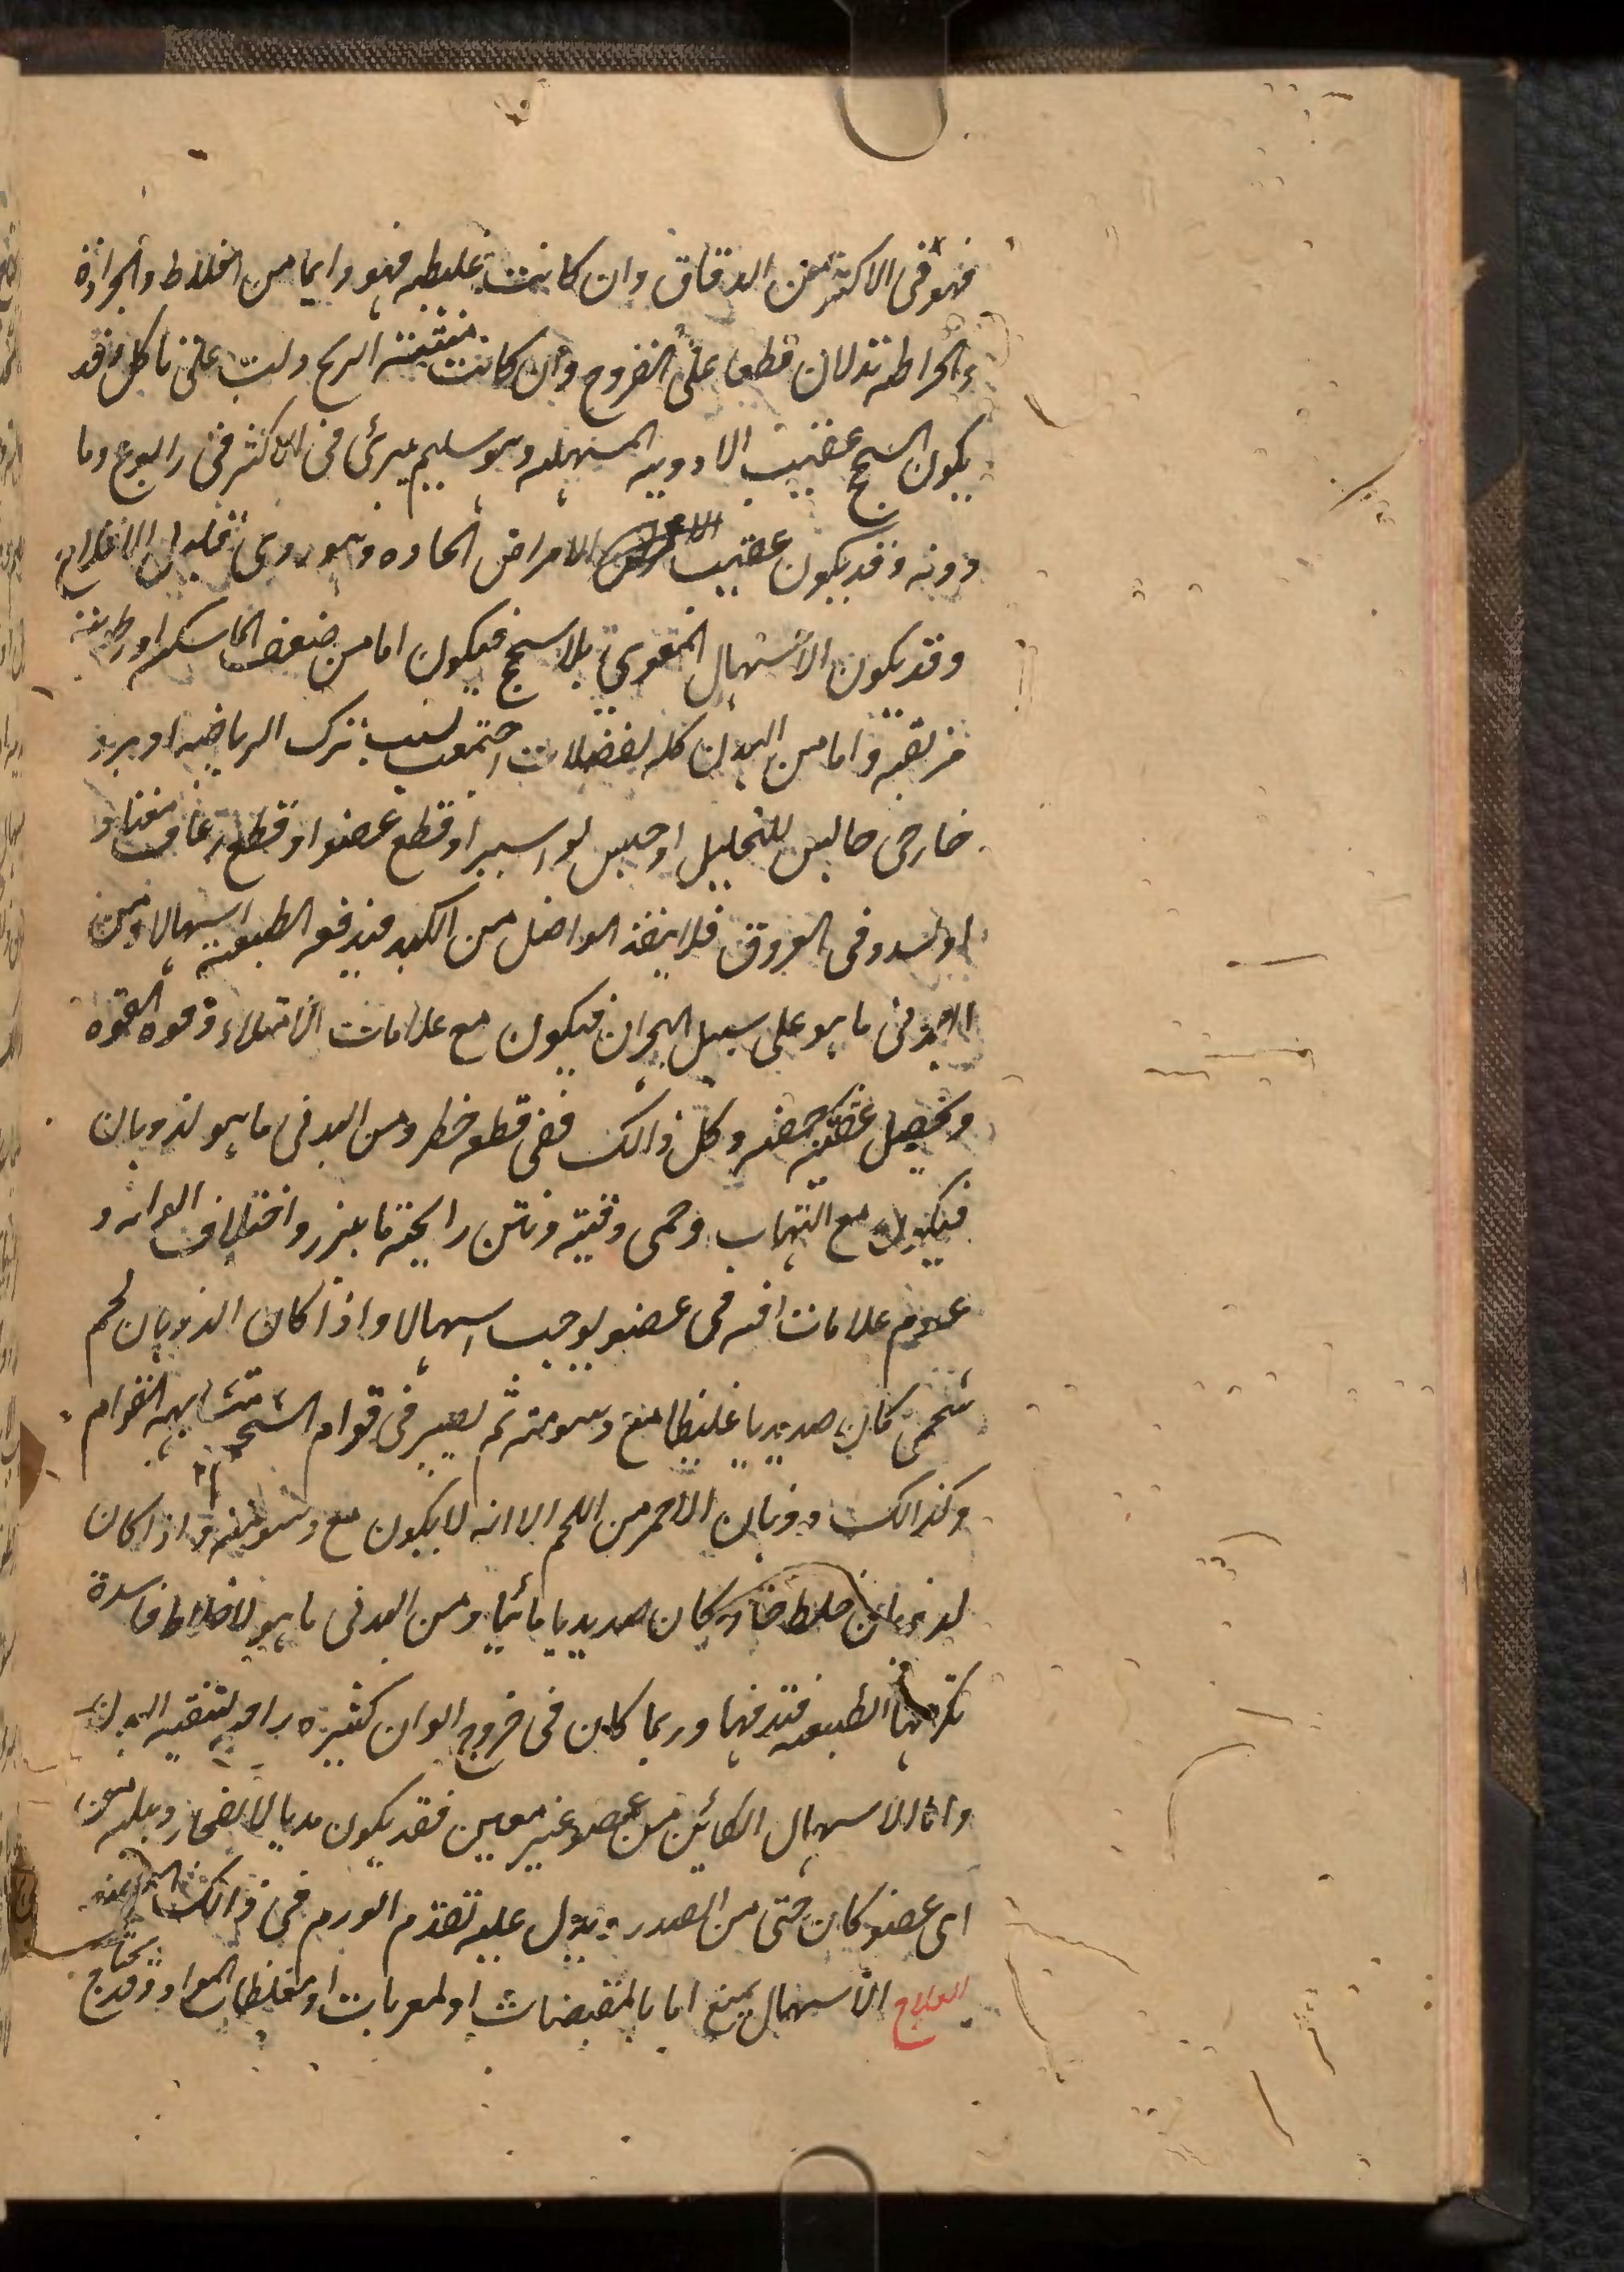 فهو فى الاكثر من الدقاق وان كانت غليظه فهو دايما من الغلاظ والجرادة
والخراطه تدلان قطعا على القروح وان كانت منتنة الريح دلت على تاكل وقد
يكون السحج عقيب الادويه المسهله وهو سليم يبرئ فى الاكثر فى رابوع وما
دونه وقد يكون عقيب الامراض الحاده وهو ردى قليل الافلاح
وقد يكون الاسهال المعوى بلا سحج فيكون اما من ضعف الماسكه او رطوبة
مزلقه واما من البدن كله لفضلات اجتمعت بسبب ترك الرياضه او برد
خارجى حابس للتحليل او حبس بواسير او قطع عضو او قطع رعاف معتاد
او لسدد فى العروق فلا ينفذ الواصل من الكبد فيدفعه الطبيعة اسهالا ومن
البدنى ما هو على سبيل البحران فيكون مع علامات الامتلاء وقوه القوه
ويحصل عقيبه خفه وكل ذالك ففى قطعه خطر ومن البدنى ما هو لذوبان
فيكون مع التهاب وحمى دقيه ونتن رايحة ما يبرز واختلاف الوانه و
عدم علامات افه فى عضو يوجب اسهالا واذا كان الذوبان لحم
شحمى كان صديديا غليظا مع دسومة ثم يصير فى قوام الشحم متشابهه القوام
وكذالك ذوبان الاحمر من اللحم الا انه لا يكون مع دسومته واذا كان
لذوبان خلط حاد كان صديديا مائيا ومن البدنى ما هو لاخلاط فاسدة
تكرهها الطبيعه فتدفها وربما كان فى خروج الوان كثيره راحه لتنقيه البدن
واما الاسهال الكائن من عضو غير معين فقد يكون مديا لانفجار دبيله من
اى عضو كان حتى من الصدر ويدل عليه تقدم الورم فى ذالك
العلاج الاسهال يمنع اما بالمقبضات او المغريات او مغلظات المواد وقد يحتاج